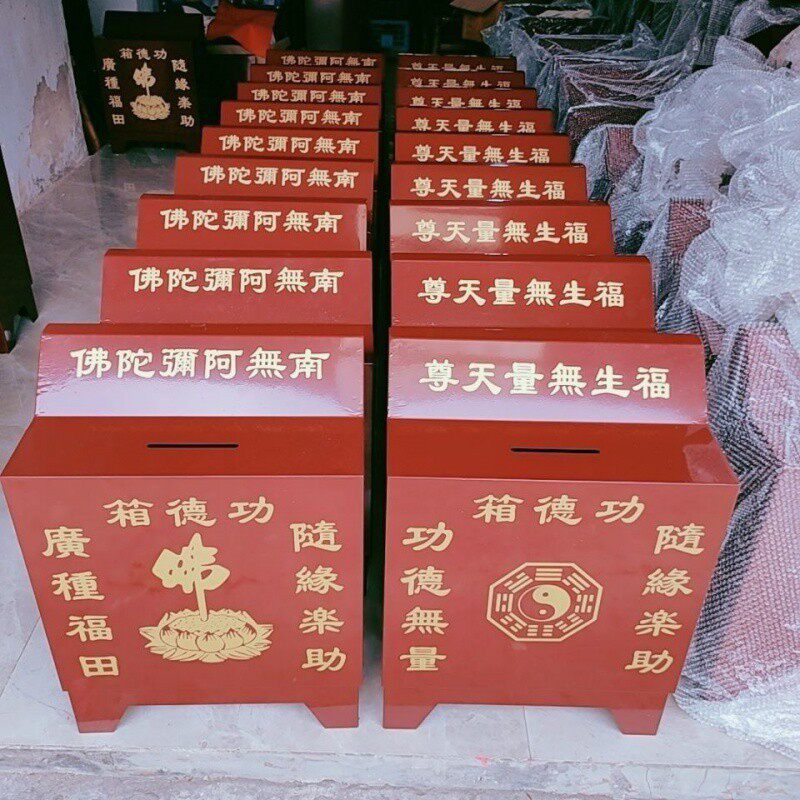 功德箱
隨緣楽助
佛
廣種福田
南無阿彌陀佛
南無阿彌陀佛
南無阿彌陀佛
南無阿彌陀佛
南無阿彌陀佛
南無阿彌陀佛
南無阿彌陀佛
南無阿彌陀佛
南無阿彌陀佛
功德箱
隨緣楽助
佛
廣種福田
福生無量天尊
福生無量天尊
福生無量天尊
福生無量天尊
福生無量天尊
福生無量天尊
福生無量天尊
福生無量天尊
福生無量天尊
功德箱
隨緣楽助
功德無量